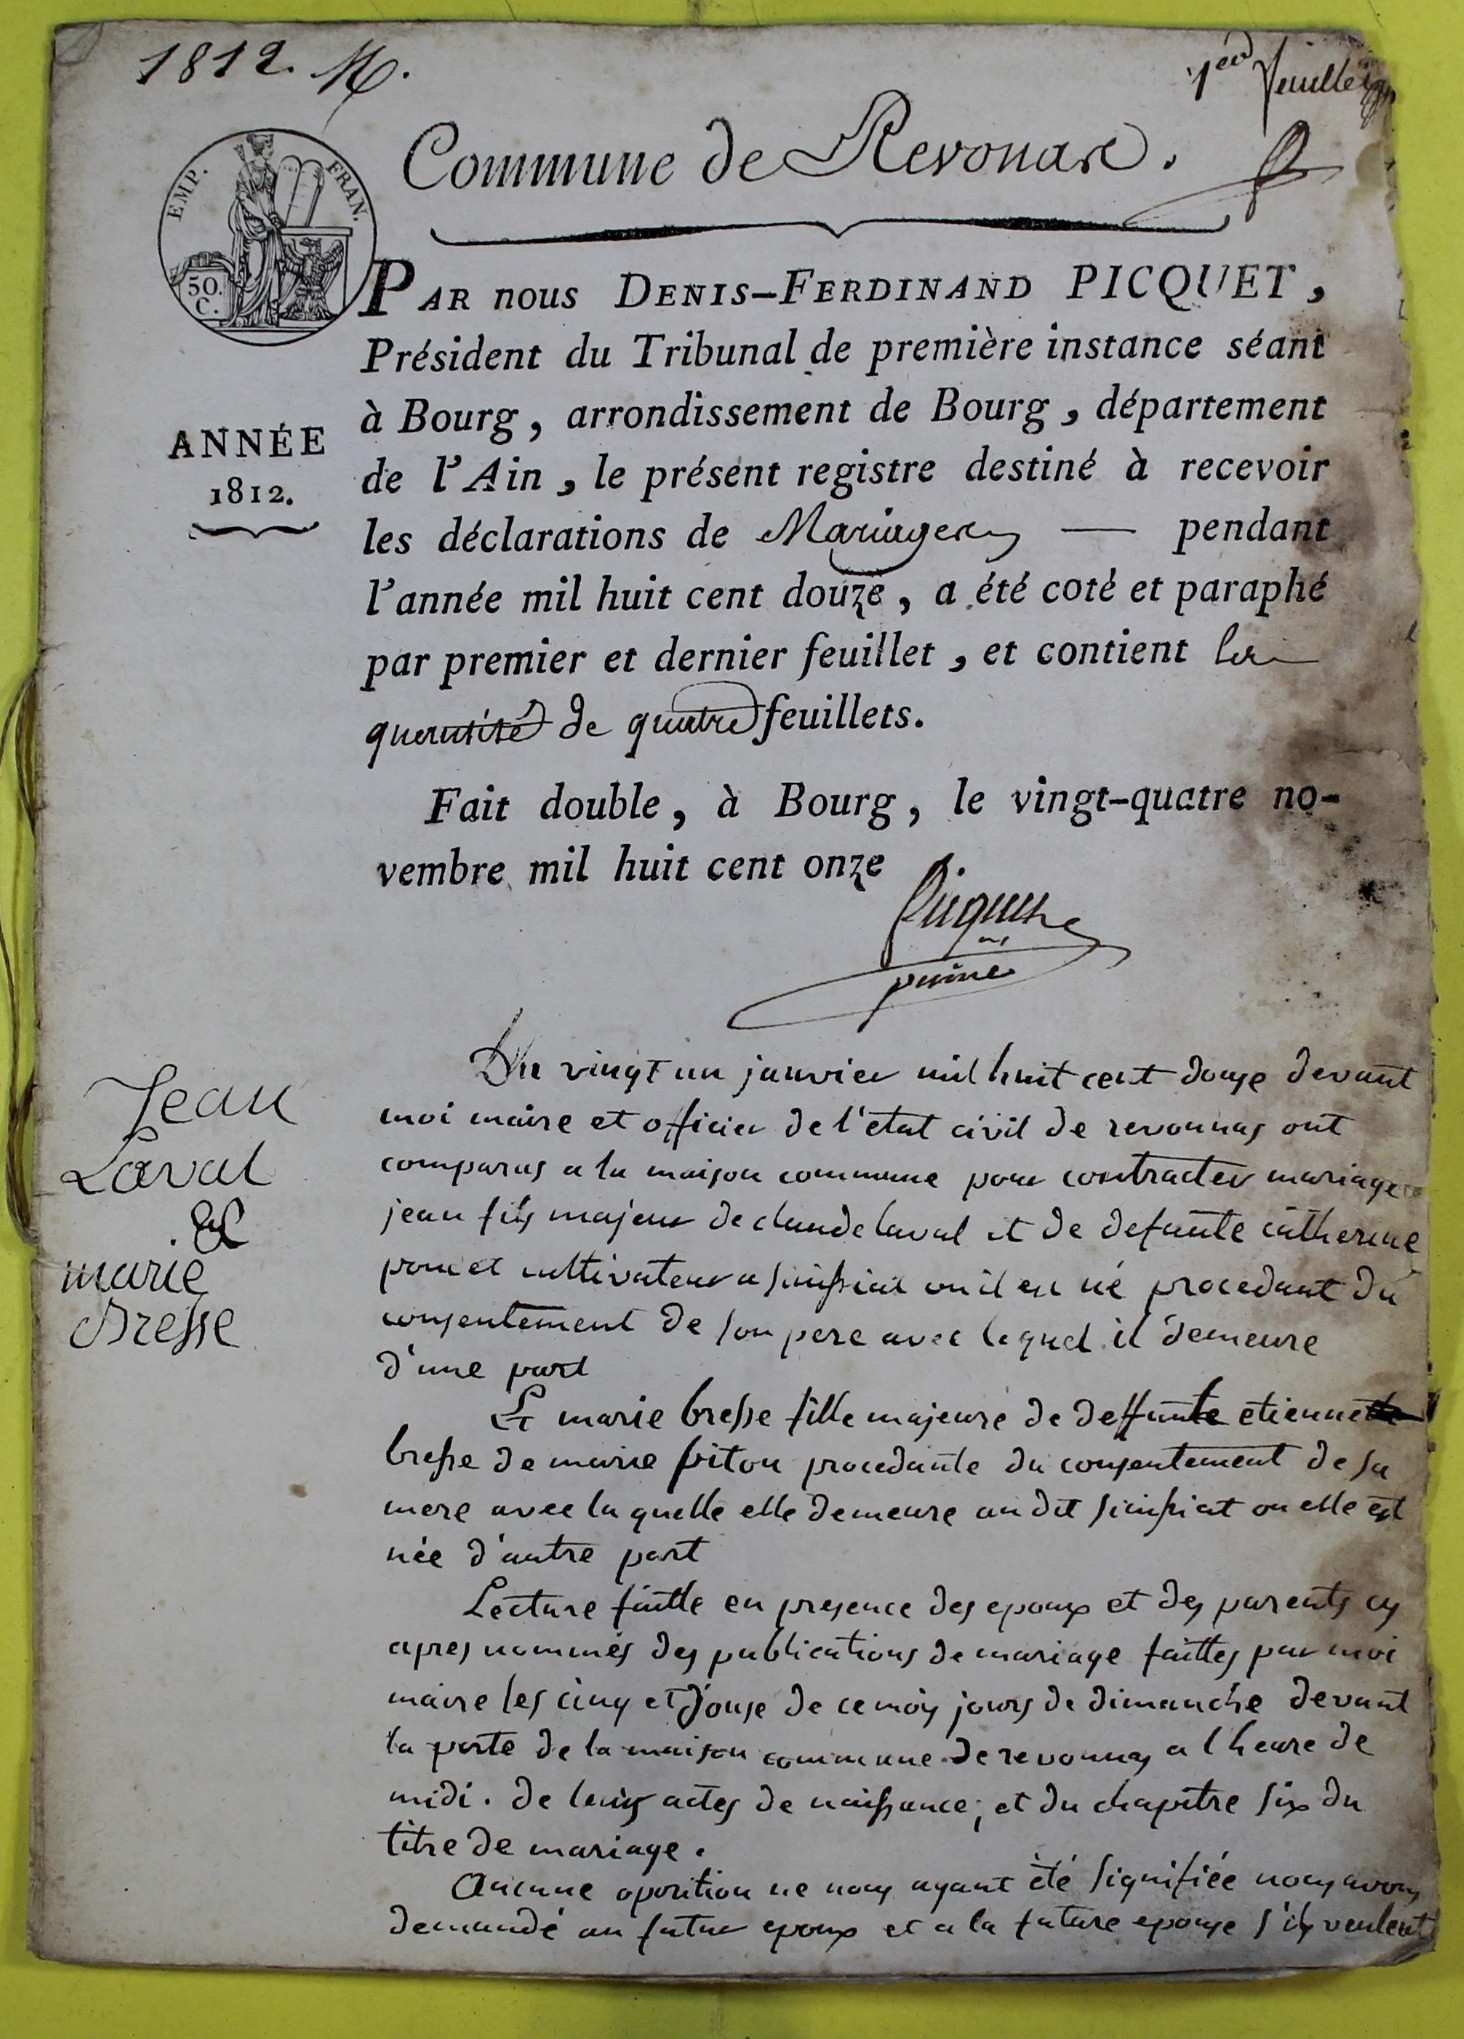 1812. M.
1er feuillet
Commune de Revonas.
EMP. FRAN.
50 C.
PAR nous DENIS-FERDINAND PICQUET,
Président du Tribunal de première instance séant
à Bourg, arrondissement de Bourg, département
de l'Ain, le présent registre destiné à recevoir
les déclarations de Mariages — pendant
l'année mil huit cent douze, a été coté et paraphé
par premier et dernier feuillet, et contient la
quantité de quatre feuillets.
ANNÉE
1812.
Fait double, à Bourg, le vingt-quatre no-
vembre mil huit cent onze
Picquet
Jean
Laval
et
marie
Bresse
Du vingt un janvier mil huit cent douze devant
moi maire et officier de l'état civil de revonnas ont
comparus a la maison commune pour contracter mariage
jean fils majeur de claude laval et de defunte catherine
poncet cultivateur a simfiat ou il est né procedant du
consentement de son pere avec lequel il demeure
d'une part
Et marie bresse fille majeure de deffunt etienne
bresse de marie piton procedante du consentement de sa
mere avec la quelle elle demeure au dit simfiat ou elle est
née d'autre part
Lecture faitte en presence des epoux et des parents cy
apres nommés des publications de mariage faittes par moi
maire les cinq et douse de ce mois jours de dimanche devant
la porte de la maison commune de revonnas a l heure de
midi. de leurs actes de naissance, et du chapitre six du
titre de mariage.
Aucune oposition ne nous ayant été signifiée nous avons
demandé au futur epoux et a la future epouse s'ils veulent